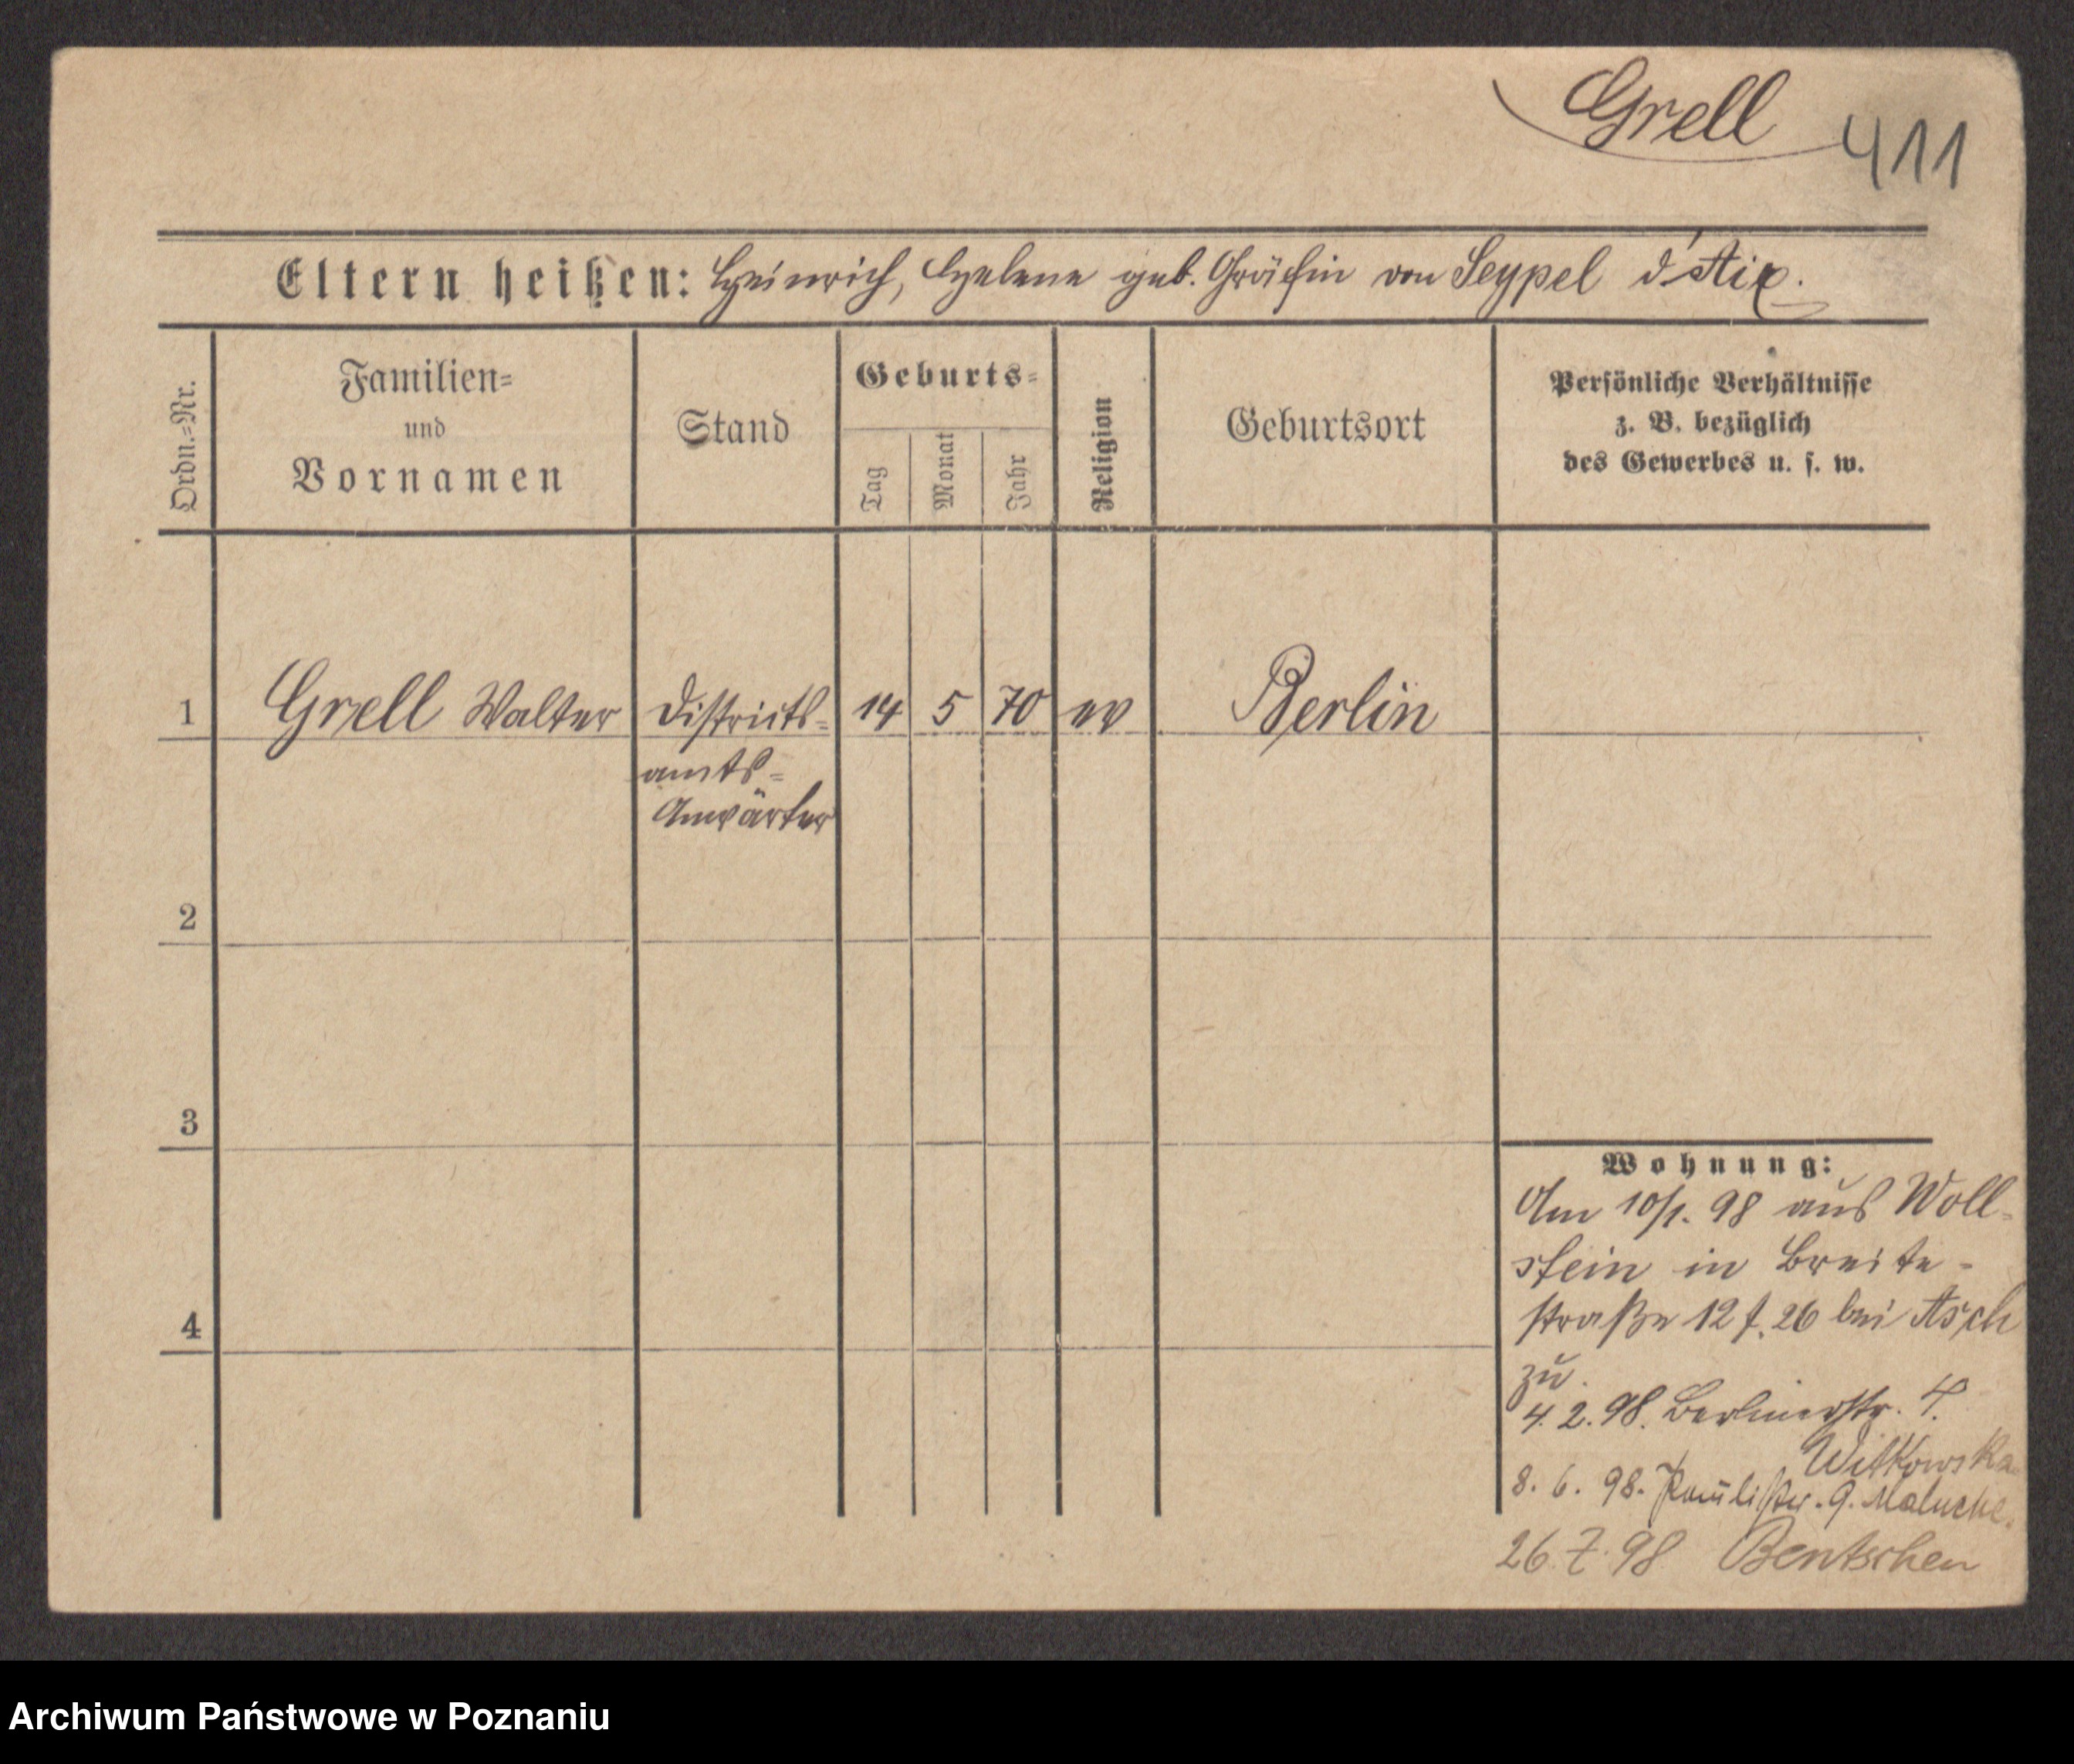 Grell
411
Eltern heißen: Heinrich, Helene geb. Gräfin von Seypel d'Aix.
Ordn.-Nr.
Familien-
und
Vornamen
Stand
Geburts-
Tag
Monat
Jahr
Religion
Geburtsort
Persönliche Verhältnisse
z. B. bezüglich
des Gewerbes u. s. w.
1 Grell Walter Districts- 14 5 70 ev Berlin
amts-
Anwärter
2
3
4
Wohnung:
Am 10/1. 98 aus Woll-
stein in Breite-
straße 12 f. 26 bei Asch
zu.
4. 2. 98. Berlinerstr. 4.
Witkowska
8. 6. 98. Paulistr. 9. Maluche.
26. 7. 98 Bentschen
Archiwum Państwowe w Poznaniu